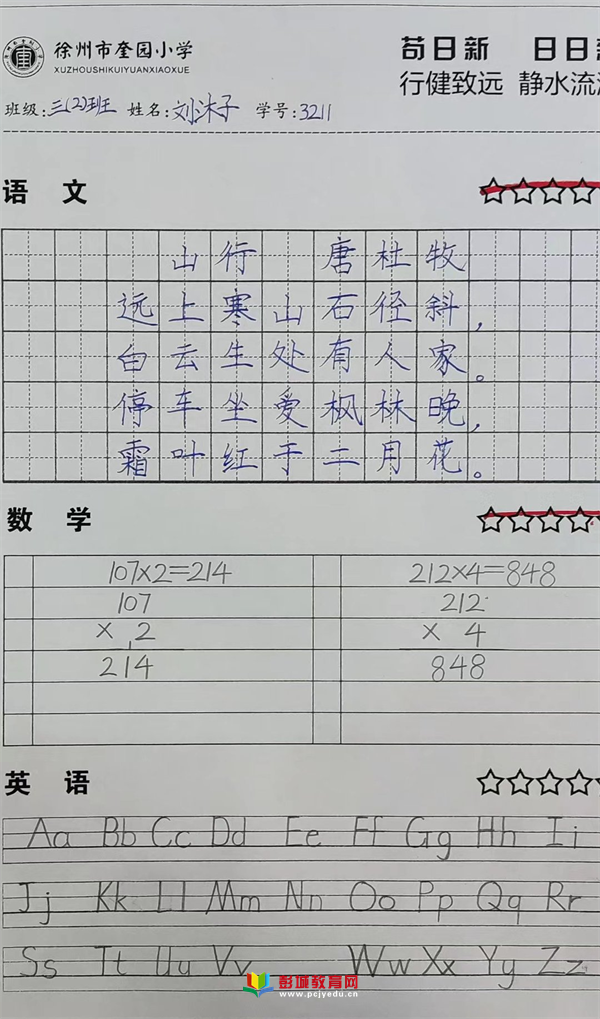 徐州市奎园小学 苟日新 日日新
XUZHOUSHIKUIYUANXIAOXUE 行健致远 静水流
班级:三(2)班 姓名:刘沐子 学号:3211
语 文
山行 唐杜牧
远上寒山石径斜,
白云生处有人家。
停车坐爱枫林晚,
霜叶红于二月花。
数 学
107×2=214 212×4=848
107 212
× 2 × 4
214 848
英 语
Aa Bb Cc Dd Ee Ff Gg Hh Ii
Jj Kk Ll Mm Nn Oo Pp Qq Rr
Ss Tt Uu Vv Ww Xx Yy Zz
彭城教育网
www.pcjyedu.cn